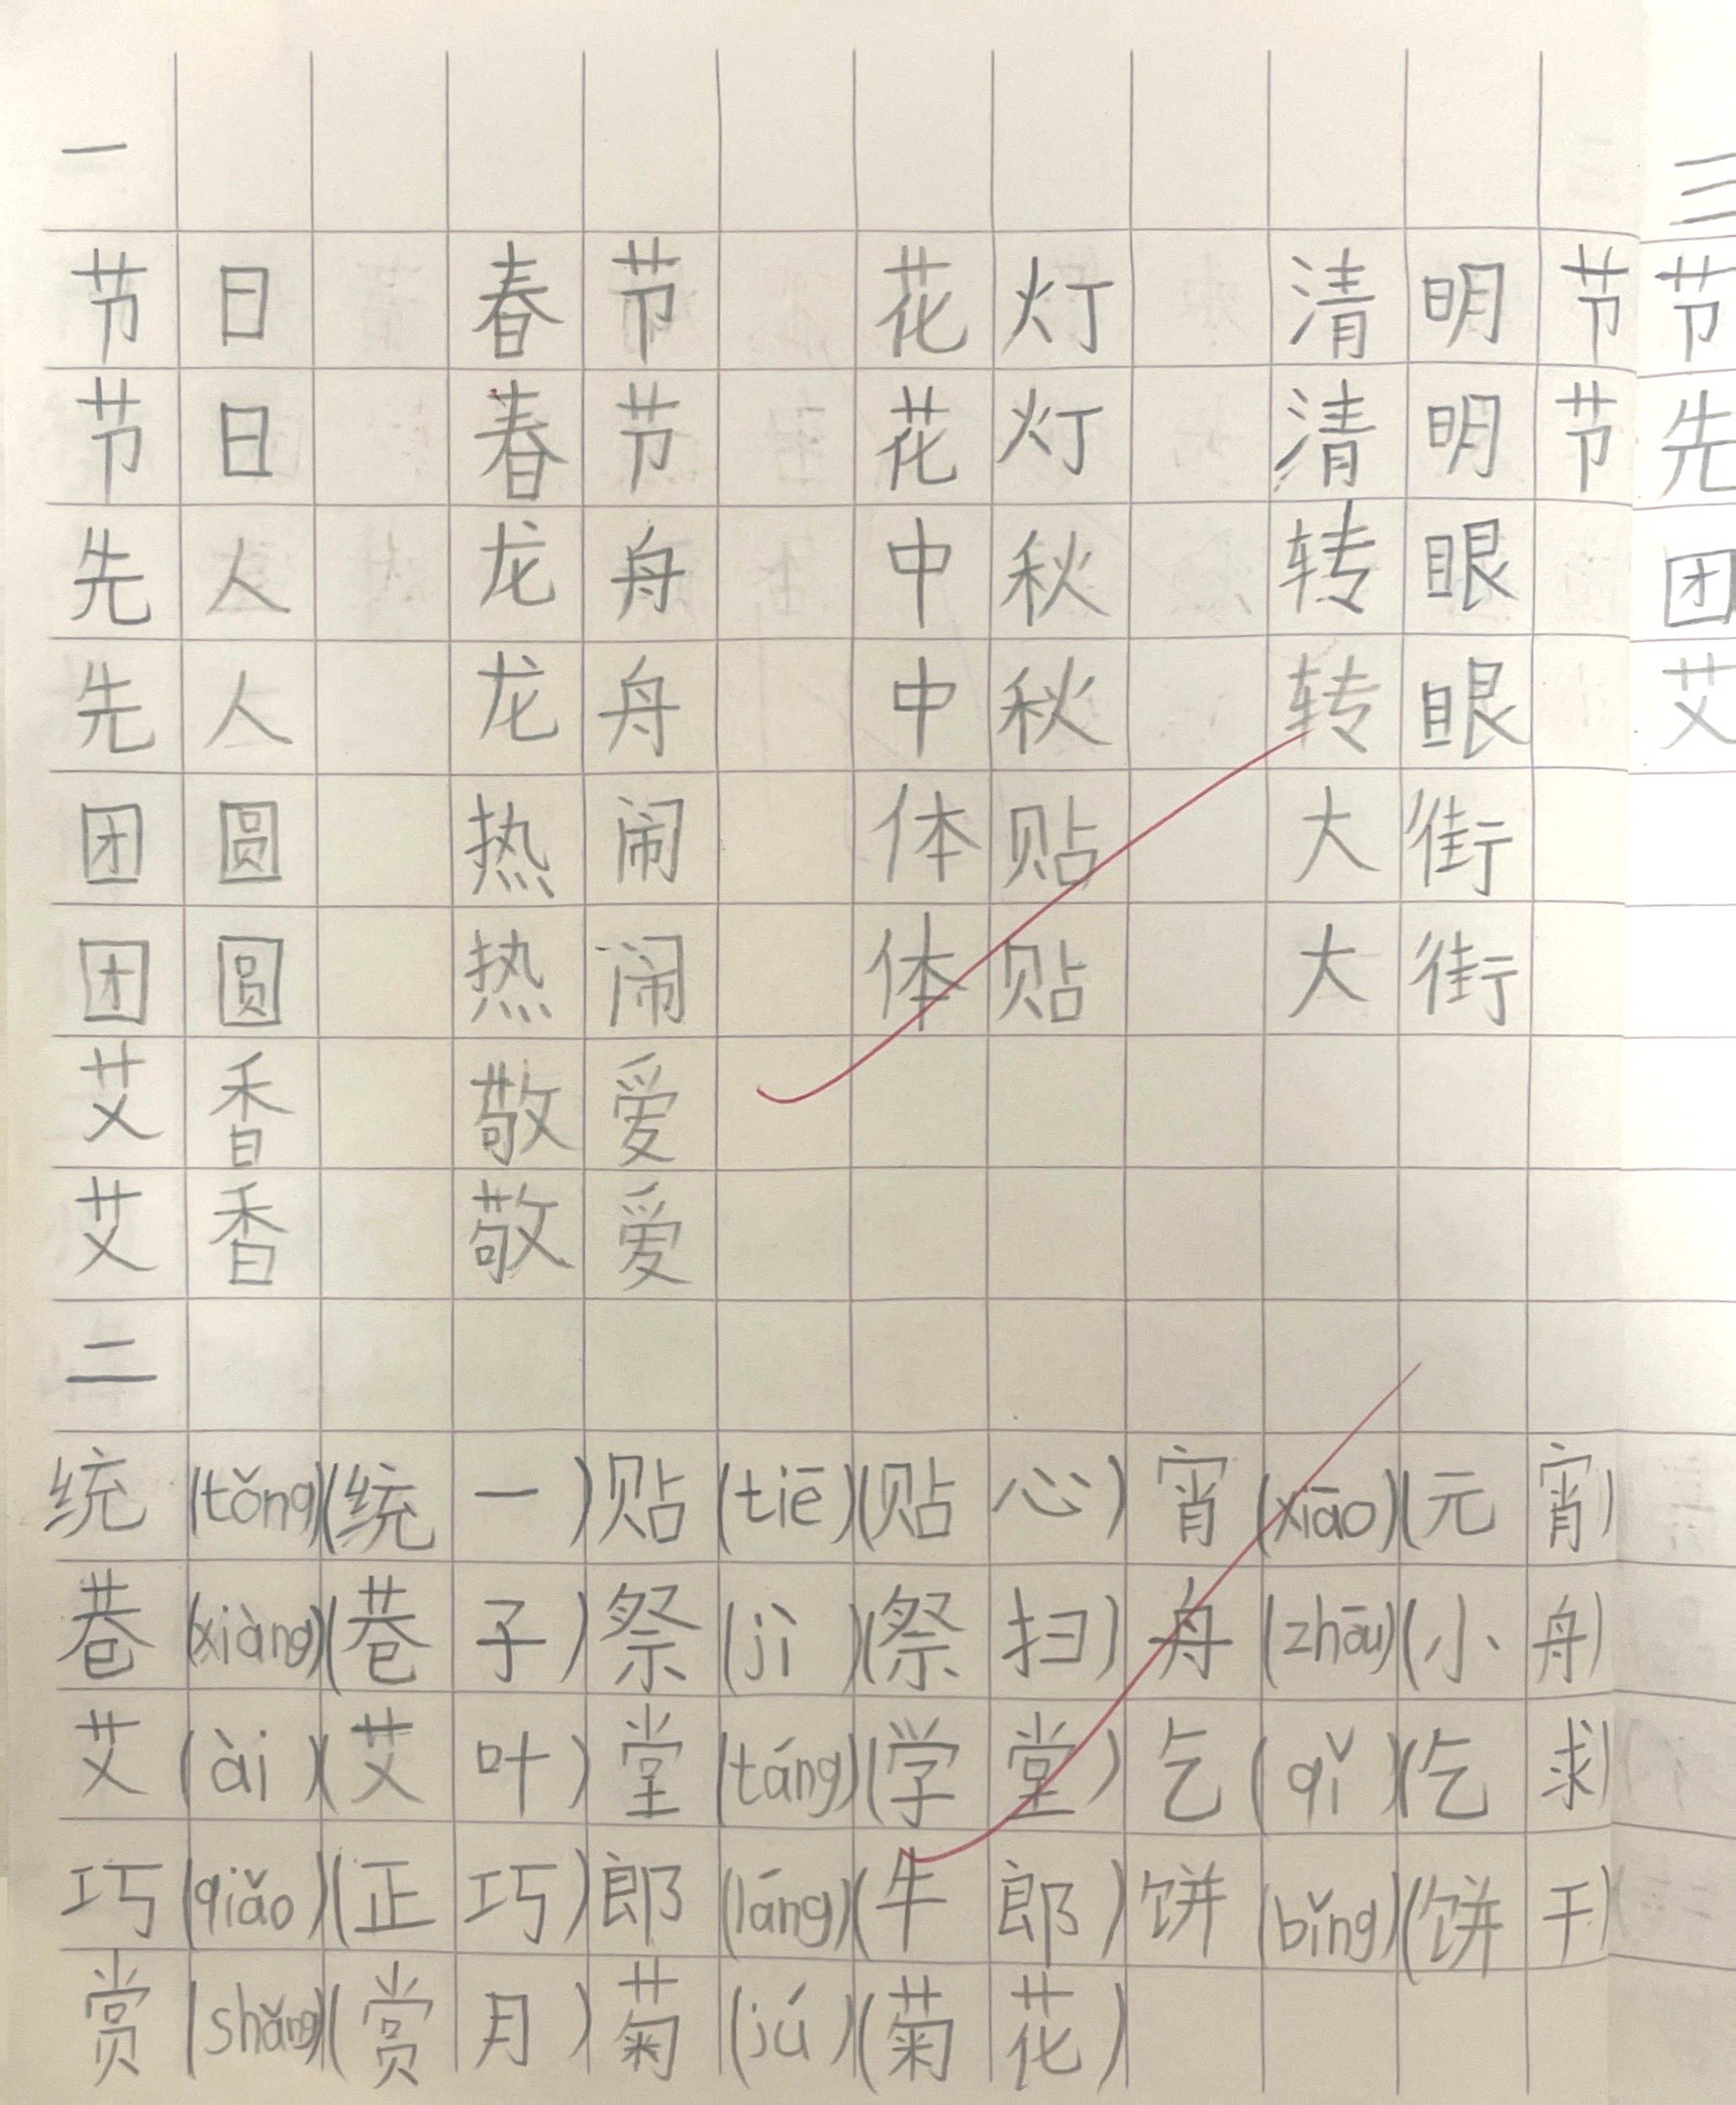 一
节日 春节 花灯 清明节
节日 春节 花灯 清明节
先人 龙舟 中秋 转眼
先人 龙舟 中秋 转眼
团圆 热闹 体贴 大街
团圆 热闹 体贴 大街
艾香 敬爱
艾香 敬爱
二
统(tǒng)(统一)贴(tiē)(贴心)宵(xiāo)(元宵)
巷(xiàng)(巷子)祭(jì)(祭扫)舟(zhōu)(小舟)
艾(ài)(艾叶)堂(táng)(学堂)乞(qǐ)(乞求)
巧(qiǎo)(正巧)郎(láng)(牛郎)饼(bǐng)(饼干)
赏(shǎng)(赏月)菊(jú)(菊花)
三
节
先
团
艾